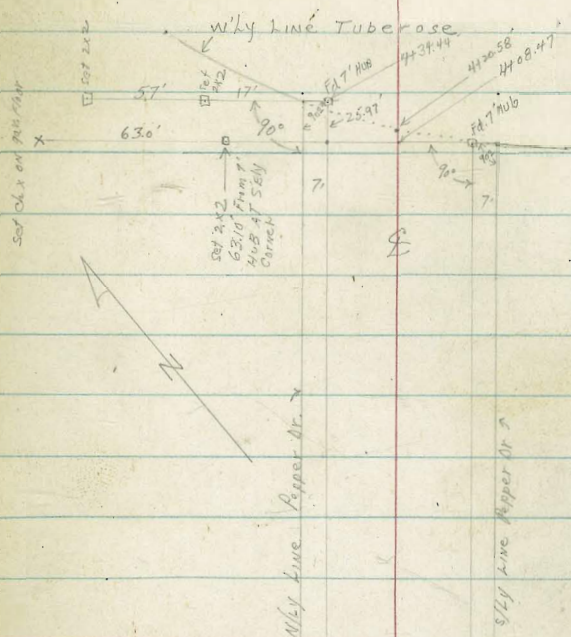 W'Ly Line Tuberose
Set 2x2
Set 2x2
Fd. 7' Hub
4+39.44
4+20.58
4+08.47
57'
17'
90°
25.97
Fd. 7' Hub
63.0'
90°
90°
7.
7.
Set 2x2
63.10' From 7'
Hub AT S'Ely
Corner
℄
N
N/Ly Line Pepper Dr.
S/Ly Line Pepper Dr